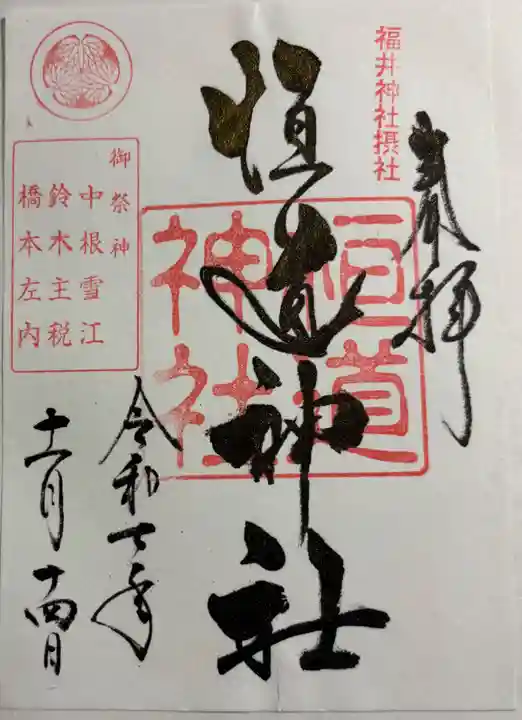 奉拝
福井神社摂社
恒道神社
恒道
神社
令和七年
十一月十四日
御祭神
中根雪江
鈴木主税
橋本左内